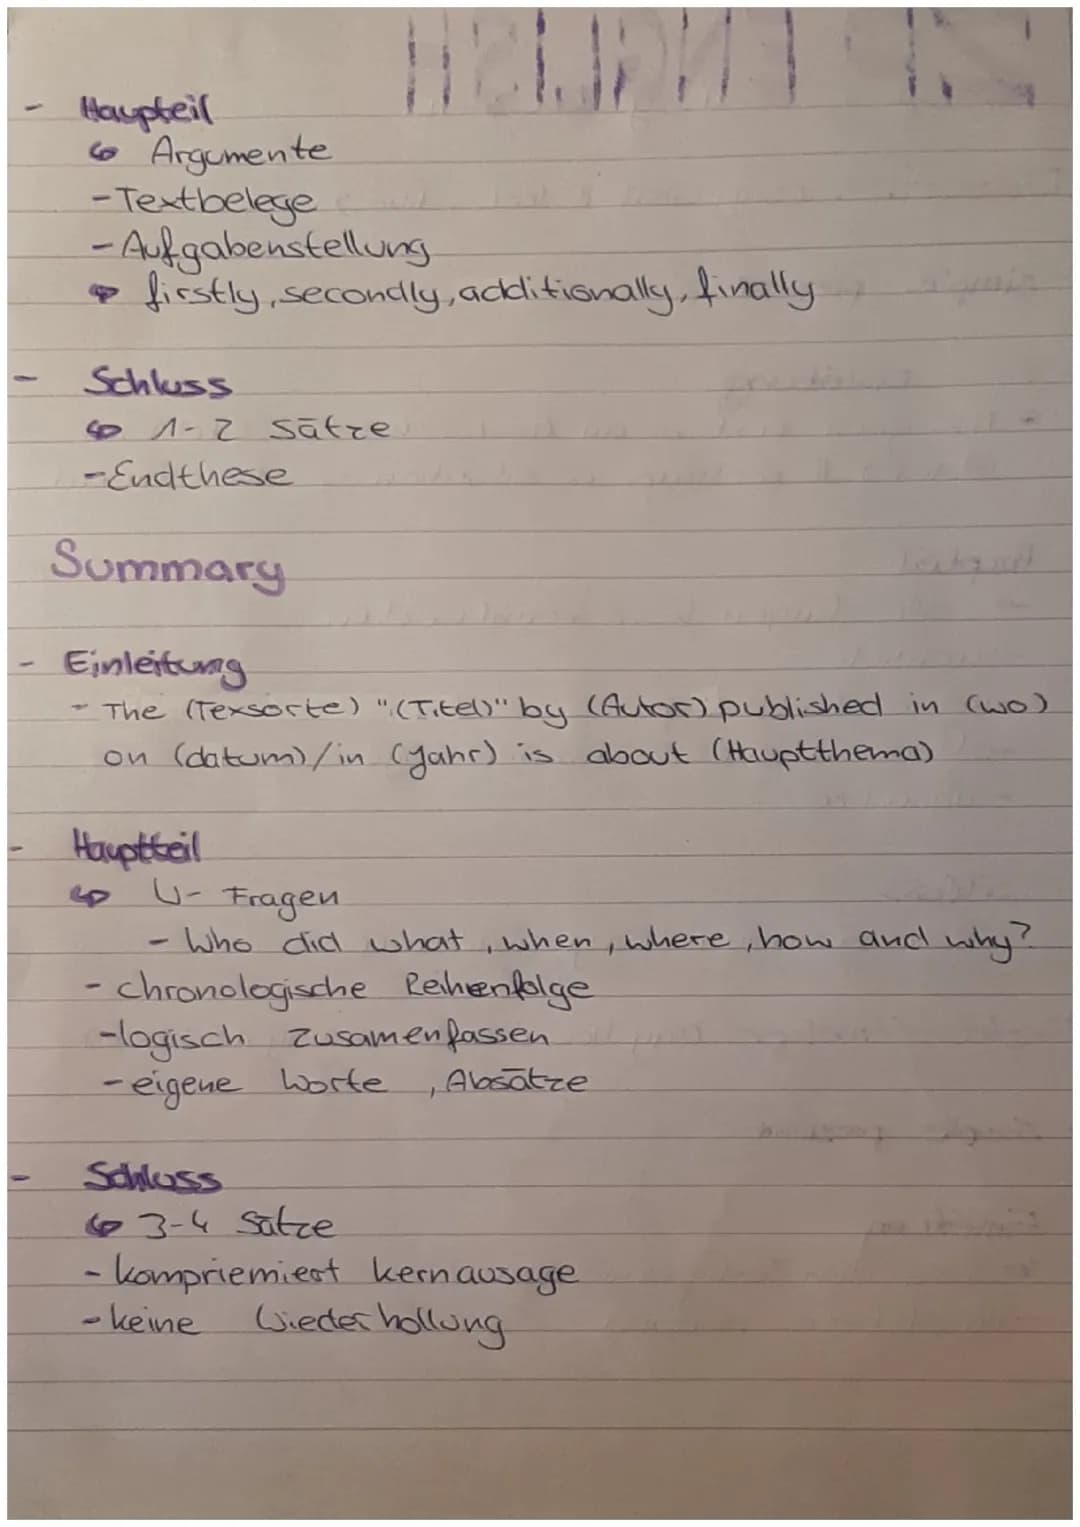 - Haupteil
↳ Argumente
- Textbelege
- Aufgabenstellung
↳ firstly, secondly, additionally, finally
- Schluss
↳ 1-2 Sätze
- Endthese
Summary
- Einleitung
- The (Texsorte) "(Titel)" by (Autor) published in (wo)
on (datum)/in (Jahr) is about (Hauptthema)
- Hauptteil
↳ W-Fragen
- Who did what, when, where, how and why?
- chronologische Reihenfolge
- logisch zusamenfassen
- eigene Worte, Absätze
- Schluss
↳ 3-4 Sätze
- kompriemiert kernausage
- keine Wiederhollung